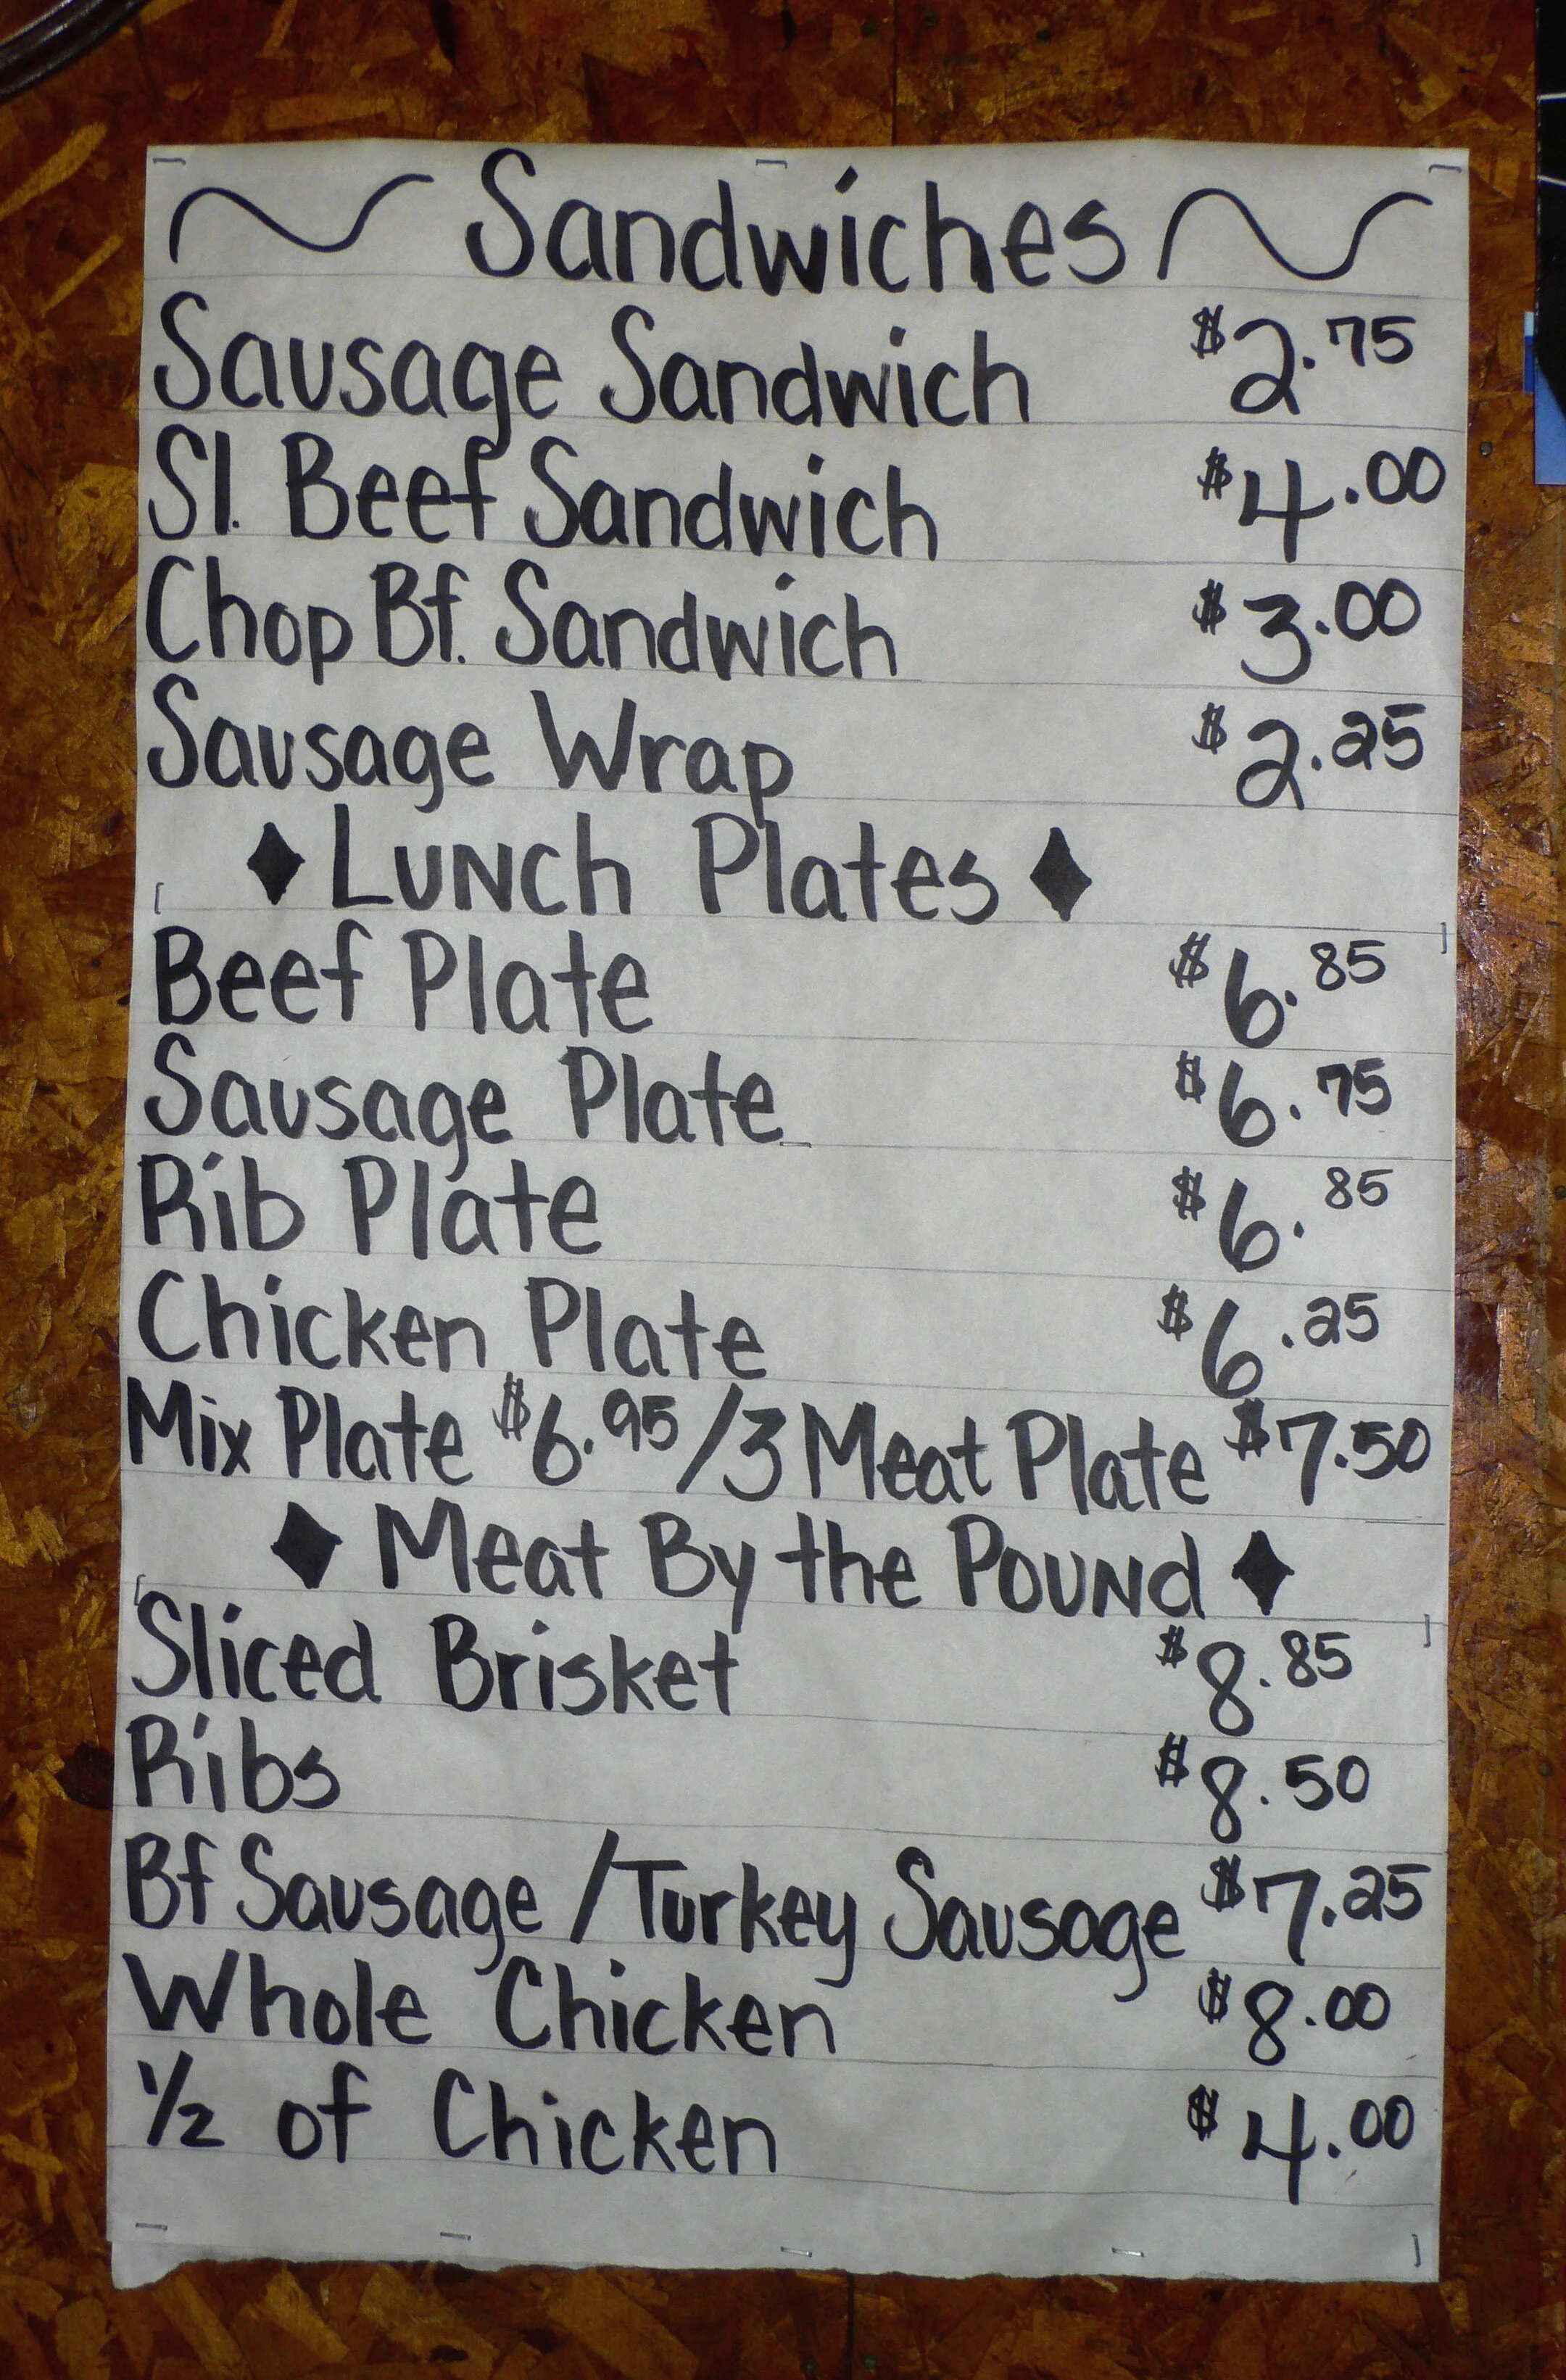 ~ Sandwiches ~
Sausage Sandwich $2.75
Sl. Beef Sandwich $4.00
Chop Bf. Sandwich $3.00
Sausage Wrap $2.25
♦ Lunch Plates ♦
Beef Plate $6.85
Sausage Plate $6.75
Rib Plate $6.85
Chicken Plate $6.25
Mix Plate $6.95/3 Meat Plate $7.50
♦ Meat By the Pound ♦
Sliced Brisket $8.85
Ribs $8.50
Bf Sausage/Turkey Sausage $7.25
Whole Chicken $8.00
1/2 of Chicken $4.00